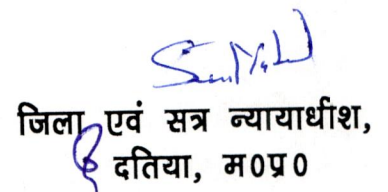 जिला एवं सत्र न्यायाधीश,
दतिया, म0प्र0